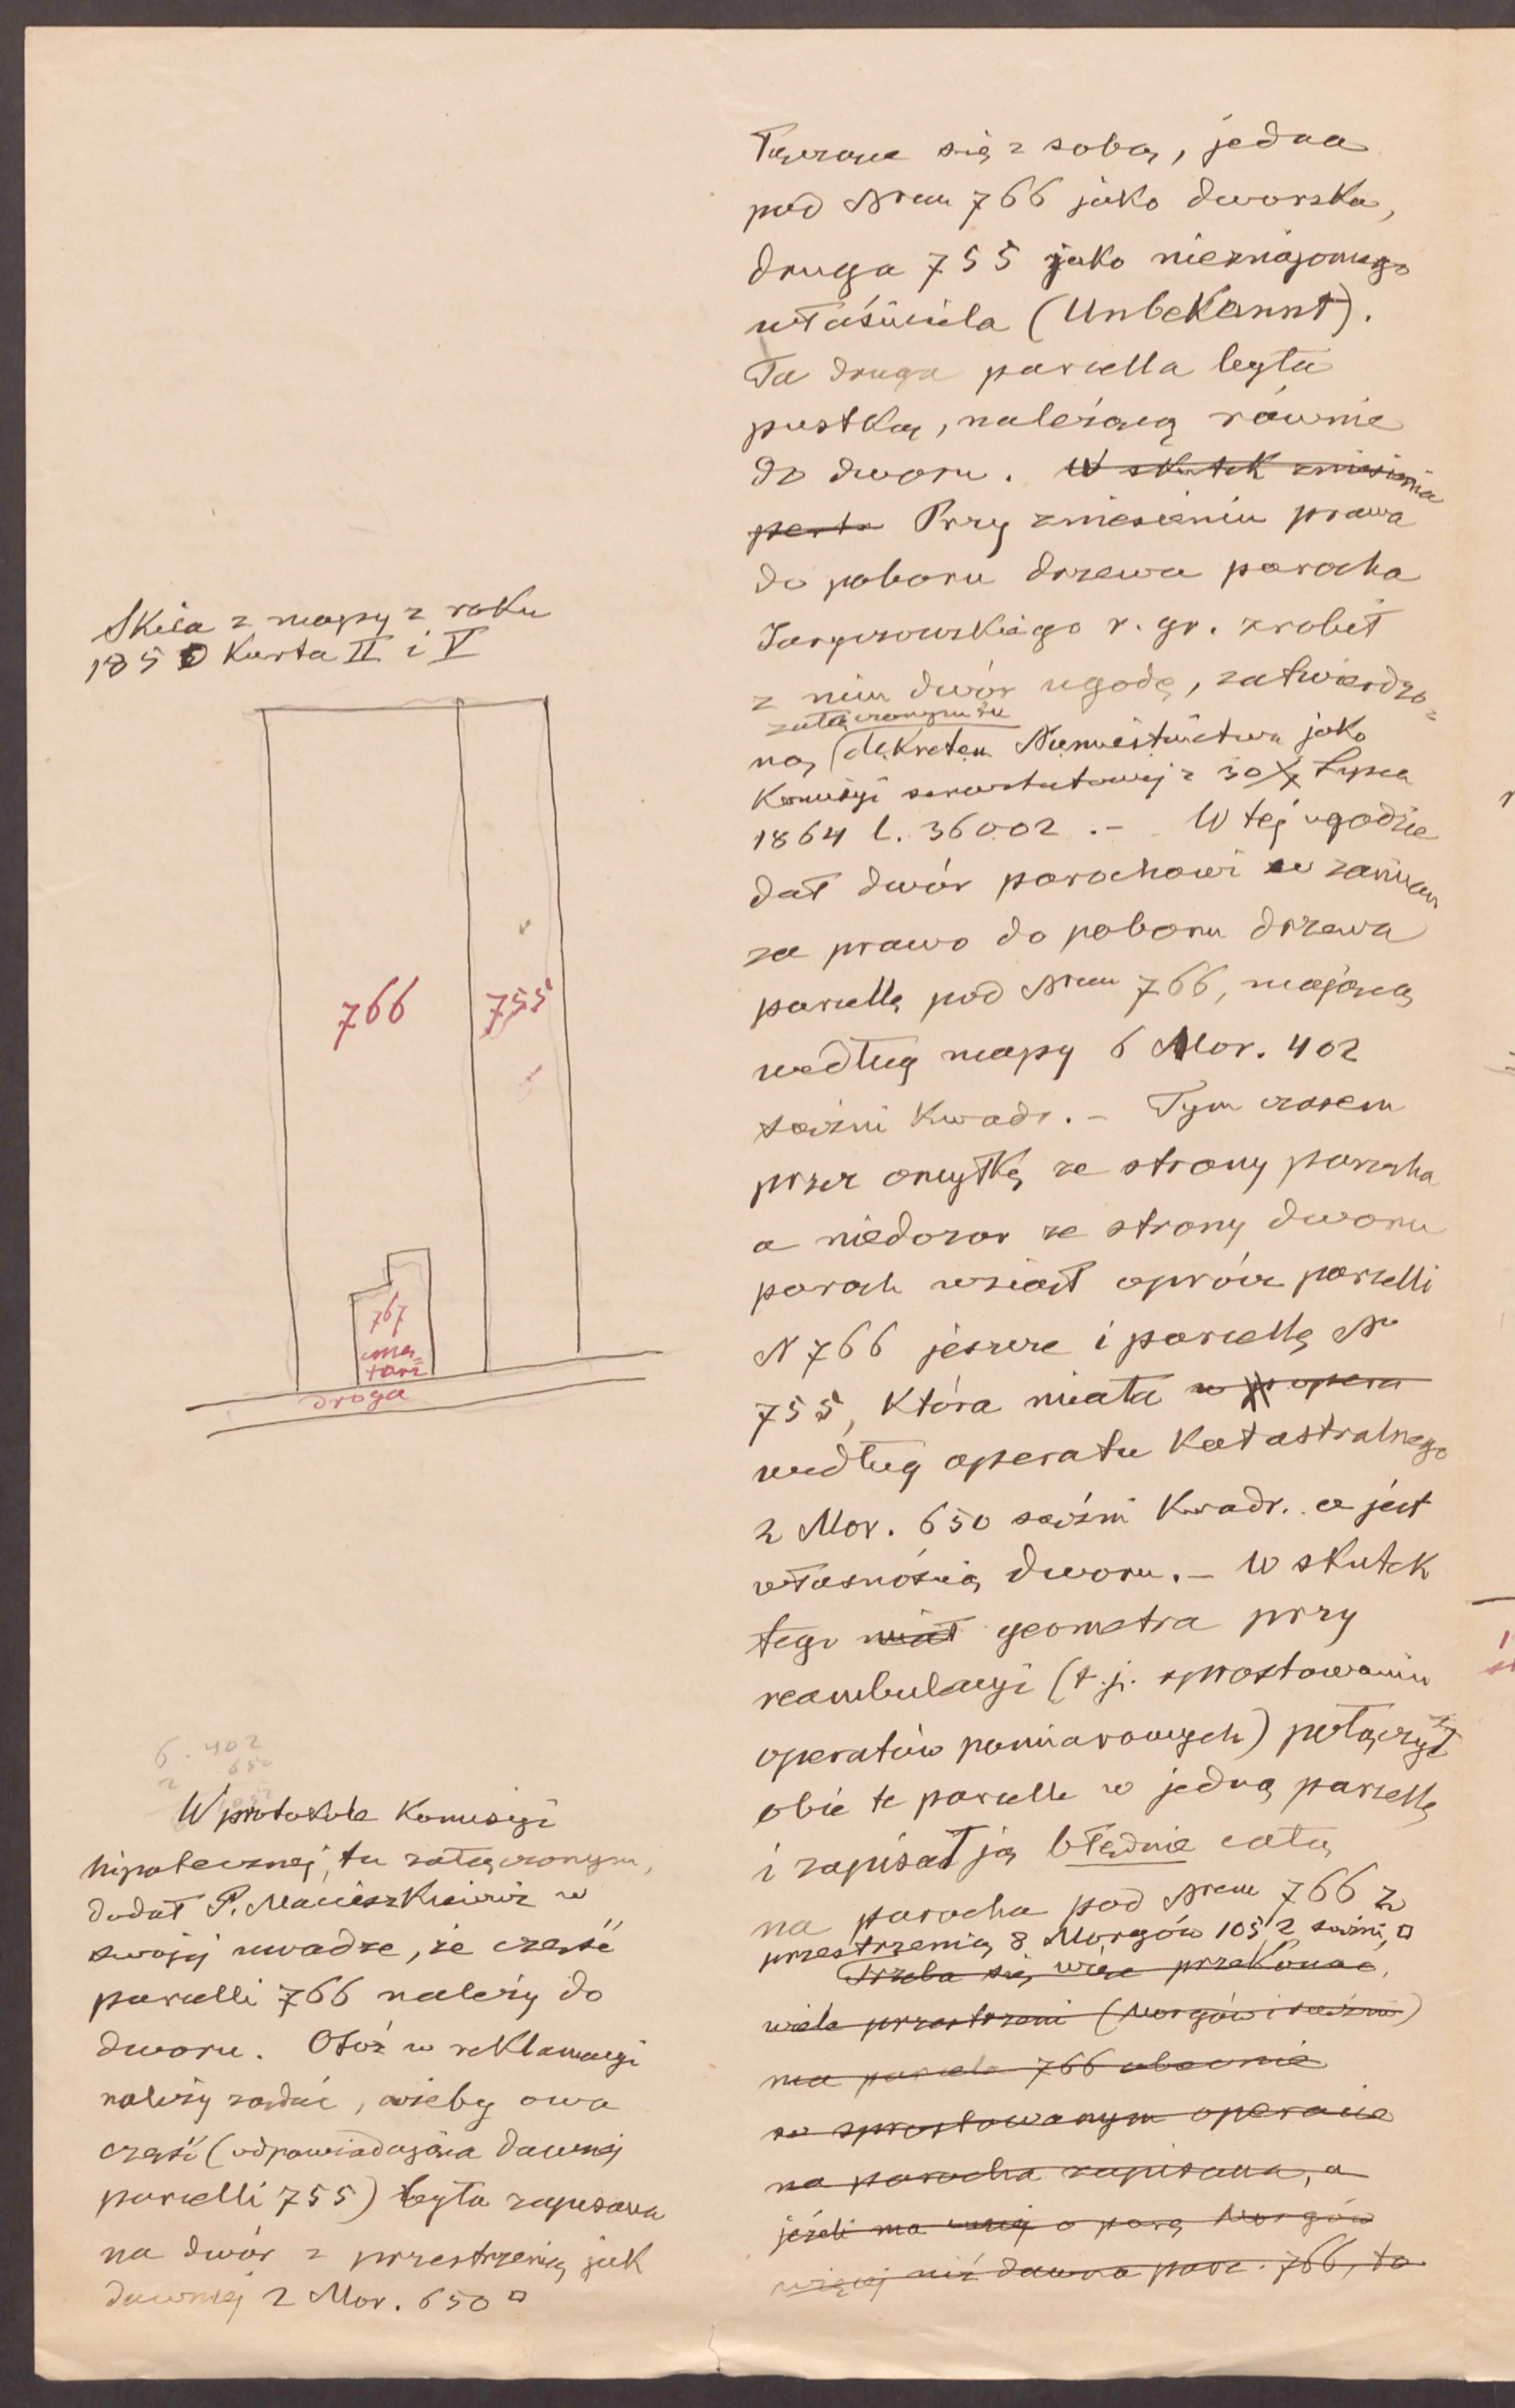 Skica z mapy z roku
1850 Karta II i V
766
755
767
cmen-
tarz
droga
6. 402
2 650
W protokole Komisyi
hipotecznej, tu załączonym,
dodał P. Macieszkiewicz w
swojej uwadze, że część
parcelli 766 należy do
dworu. Otóż w reklamacyi
należy żądać, ażeby owa
część (odpowiadająca dawnej
parcelli 755) była zapisana
na dwór z przestrzenią jak
dawniej 2 Mor. 650 □
Łączące się z sobą, jedna
pod Nrem 766 jako dworska,
druga 755 jako nieznajomego
właściciela (Unbekannt).
Ta druga parcella była
pustką, należącą równie
do dworu. W skutek zniesienia
Przy zniesieniu prawa
do poboru drzewa parocha
r. gr. zrobił
z nim dwór ugodę, zatwierdzo-
załączonym tu
ną dekretem Namiestnictwa jako
Komisyi serwitutowej z 30 Lipca
1864 l. 36002 .- W tej ugodzie
dał dwór parochowi w zamian
za prawo do poboru drzewa
parcellę pod Nrem 766, mającą
według mapy 6 Mor. 402
sążni kwadr. - Tym czasem
przez omyłkę ze strony parocha
a niedozor ze strony dworu
paroch wziął oprócz parcelli
N 766 jeszcze i parcellę No
755, która miała w opera
według operatu katastralnego
2 Mor. 650 sążni kwadr. a jest
własnością dworu. - W skutek
tego miał geometra przy
reambulacyi (t.j. sprostowaniu
operatów pomiarowych) połączył
obie te parcelle w jedną parcellę
i zapisał ją błędnie całą
na parocha pod Nrem 766 z
przestrzenią 8 Morgów 1052 sążni □
Trzeba się więc przekonać,
wiele przestrzeni (Morgów i sążni)
ma parcela 766 obecnie
w sprostowanym operacie
na parocha zapisana, a
jeżeli ma więcej o parę Morgów
więcej niż dawna parc. 766, to